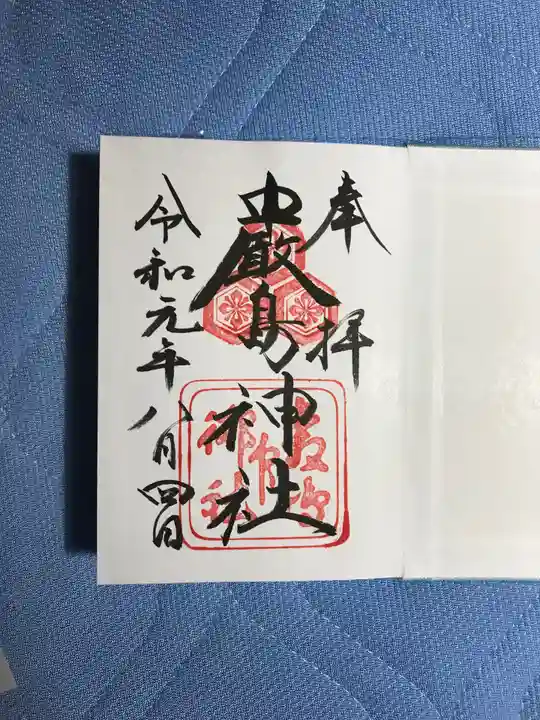 奉拝
嚴島神社
令和元年八月四日